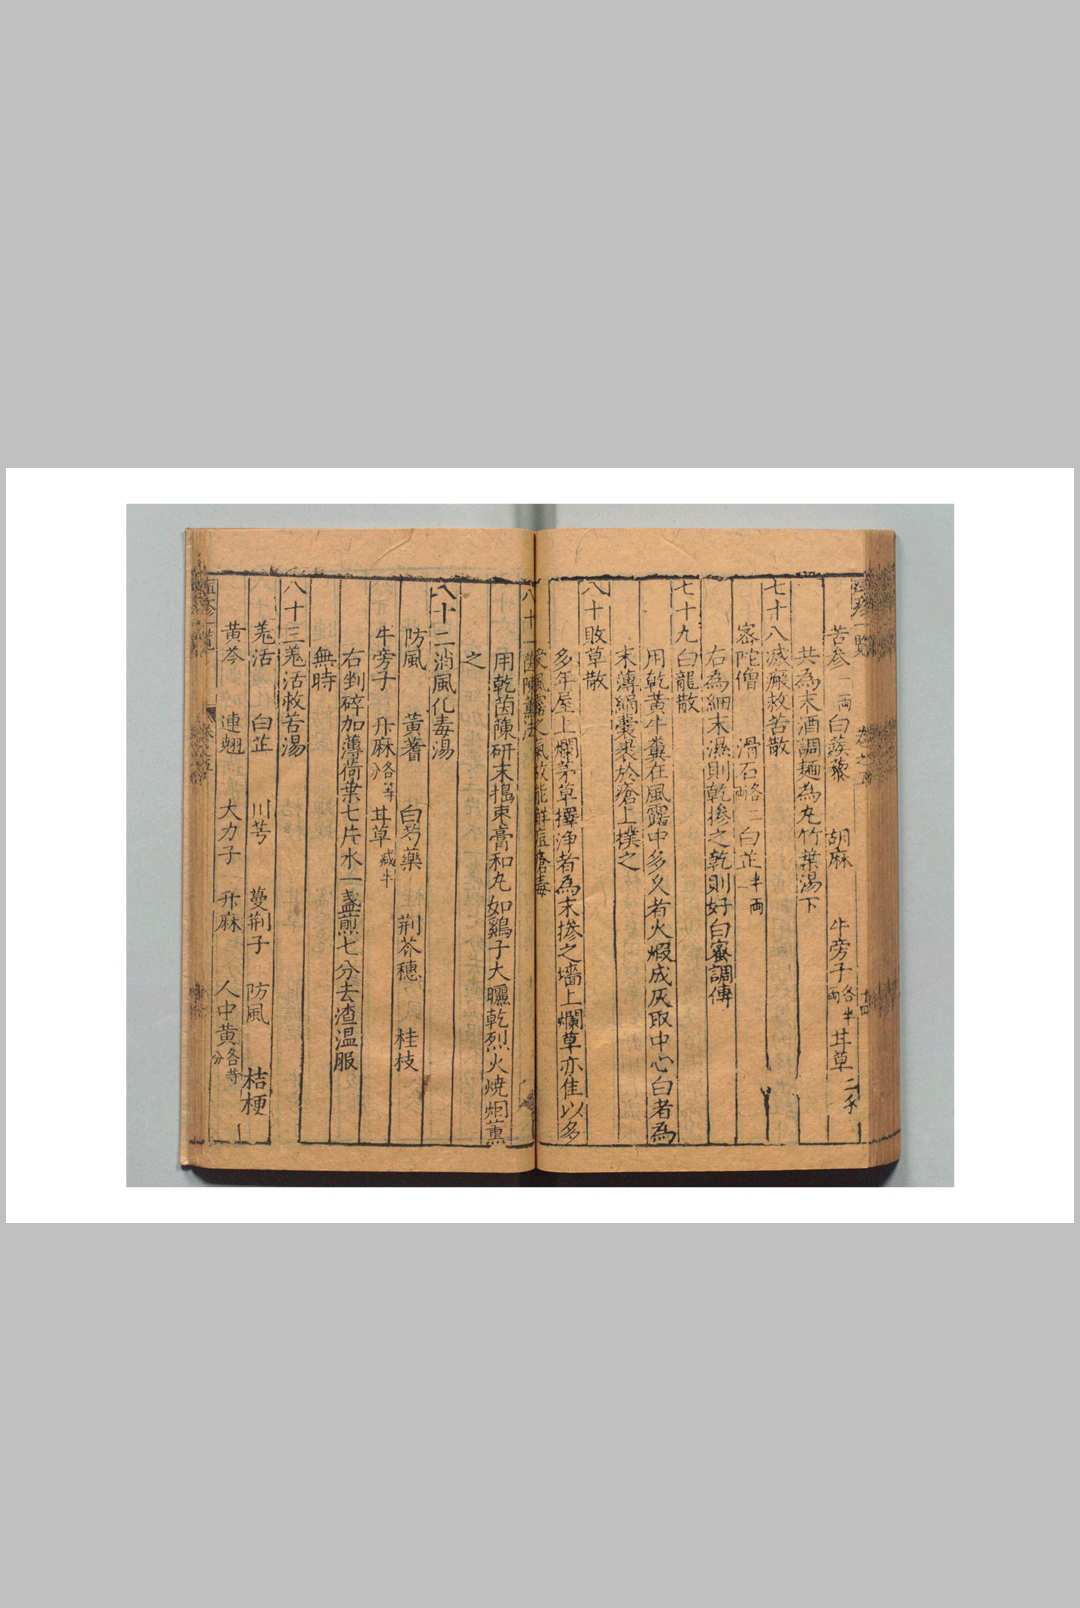 苦参一両 白蒺藜 胡麻 牛旁子各半両 甘草二分
共為末酒調麺為丸竹葉湯下
七十八滅瘢救苦散
密陀僧 滑石各二両 白芷半両
右為細末濕則乾摻之乾則好白蜜調傅
七十九白龍散
用乾黄牛糞在風露中多久者火煆成灰取中心白者為
末薄絹嚢裹於瘡上撲之
八十敗草散
多年屋上爛茅草擇浄者為末摻之墻上爛草亦佳以多
受風露之氣故能解痘瘡毒
八十一茵陳薫法
用乾茵陳研末搗棗膏和丸如鷄子大曬乾烈火焼烟薫
之
八十二消風化毒湯
防風 黄蓍 白芍藥 荆芥穗 桂枝
牛旁子 升麻各等分 甘草减半
右剉碎加薄荷葉七片水一盞煎七分去渣温服
無時
八十三羗活救苦湯
羗活 白芷 川芎 蔓荆子 防風 桔梗
黄芩 連翹 大力子 升麻 人中黄各等分